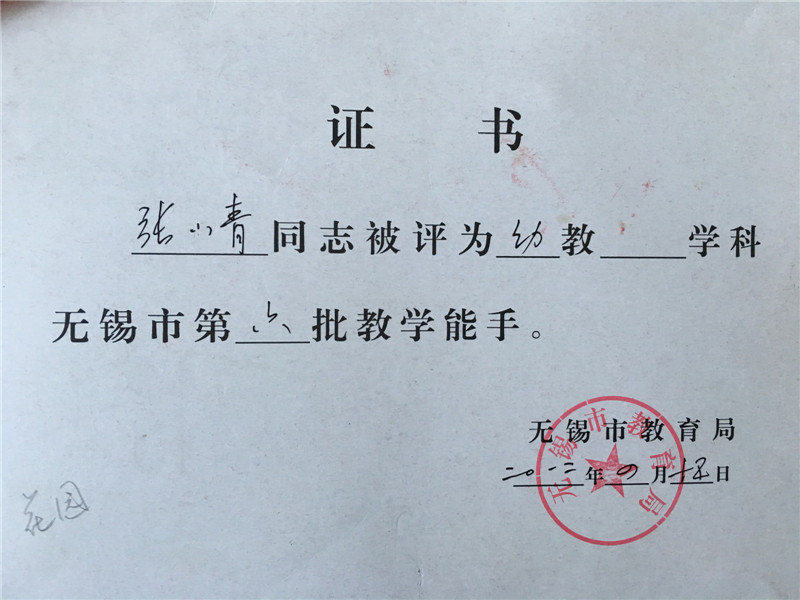 证 书
张小青同志被评为幼教 学科
无锡市第六批教学能手。
无锡市教育局
无锡市教育局
二〇一二年四月十五日
花园